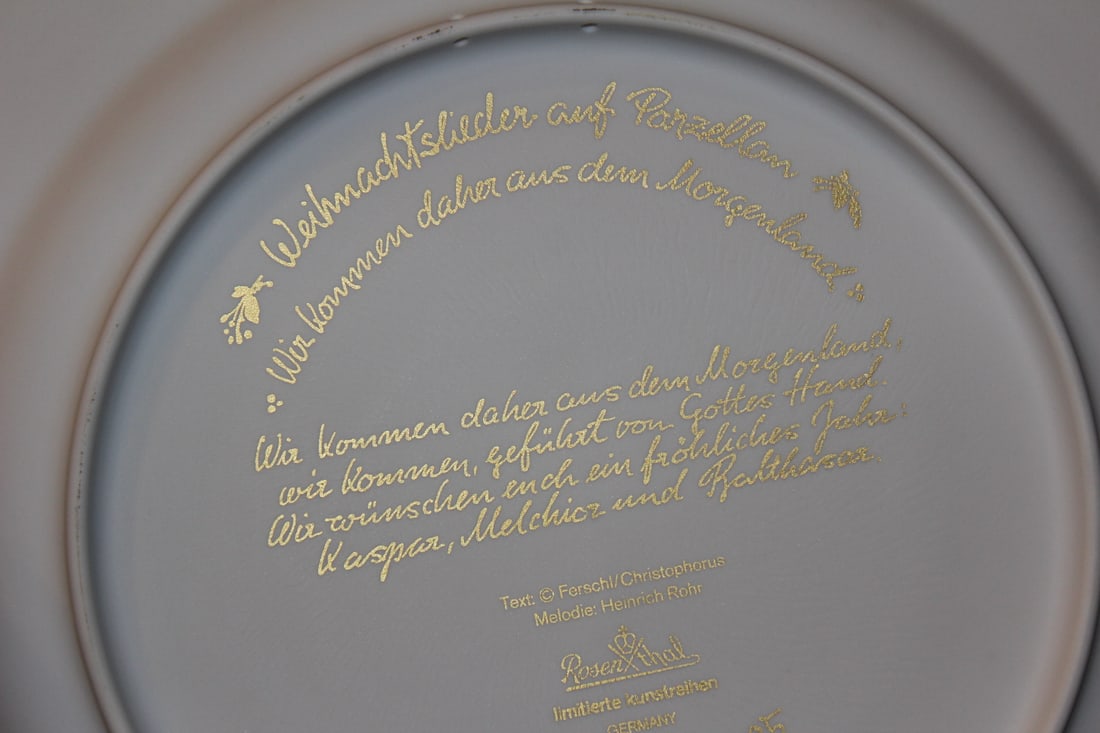 Weihnachtslieder auf Porzellan
Wir kommen daher aus dem Morgenland
Wir kommen daher aus dem Morgenland,
wir kommen, geführt von Gottes Hand.
Wir wünschen euch ein fröhliches Jahr:
Kaspar, Melchior und Balthasar.
Text: © Ferschl/Christophorus
Melodie: Heinrich Rohr
Rosenthal
limitierte kunstreihen
GERMANY